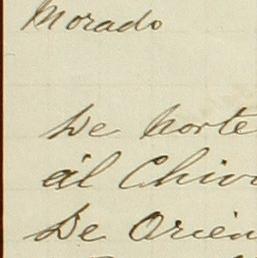 Morado
De Norte
ál Chiv
De Orien